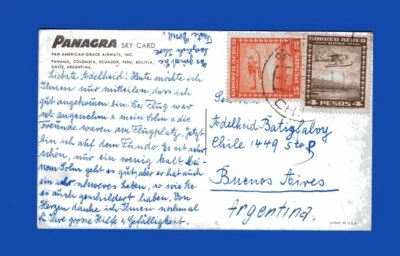 PANAGRA SKY CARD
PAN AMERICAN-GRACE AIRWAYS, INC.
PANAMA, COLOMBIA, ECUADOR, PERU, BOLIVIA,
CHILE, ARGENTINA.
Liebste Adelheid: Heute möchte ich
Ihnen nur mitteilen, dass ich
gut angekommen bin. Die Flug war
sehr angenehm & mein Sohn & die
Freunde waren am Flugplatz. Jetzt
bin ich auf dem Fundo. Es ist sehr
schön, nur ein wenig kalt. Meinem
Sohn geht es gut, aber er hat auch
ein schweres Leben, so wie Sie
es auch geschildert haben. Von
Herzen danke ich Ihnen nochmal
für Ihre grosse Hilfe & Gefälligkeit.
CORREO AEREO
CHILE
2 PESOS 2
CORREO AEREO
4 PESOS 4
Adelheid
Chile 1449 5to
Buenos Aires
Argentina.